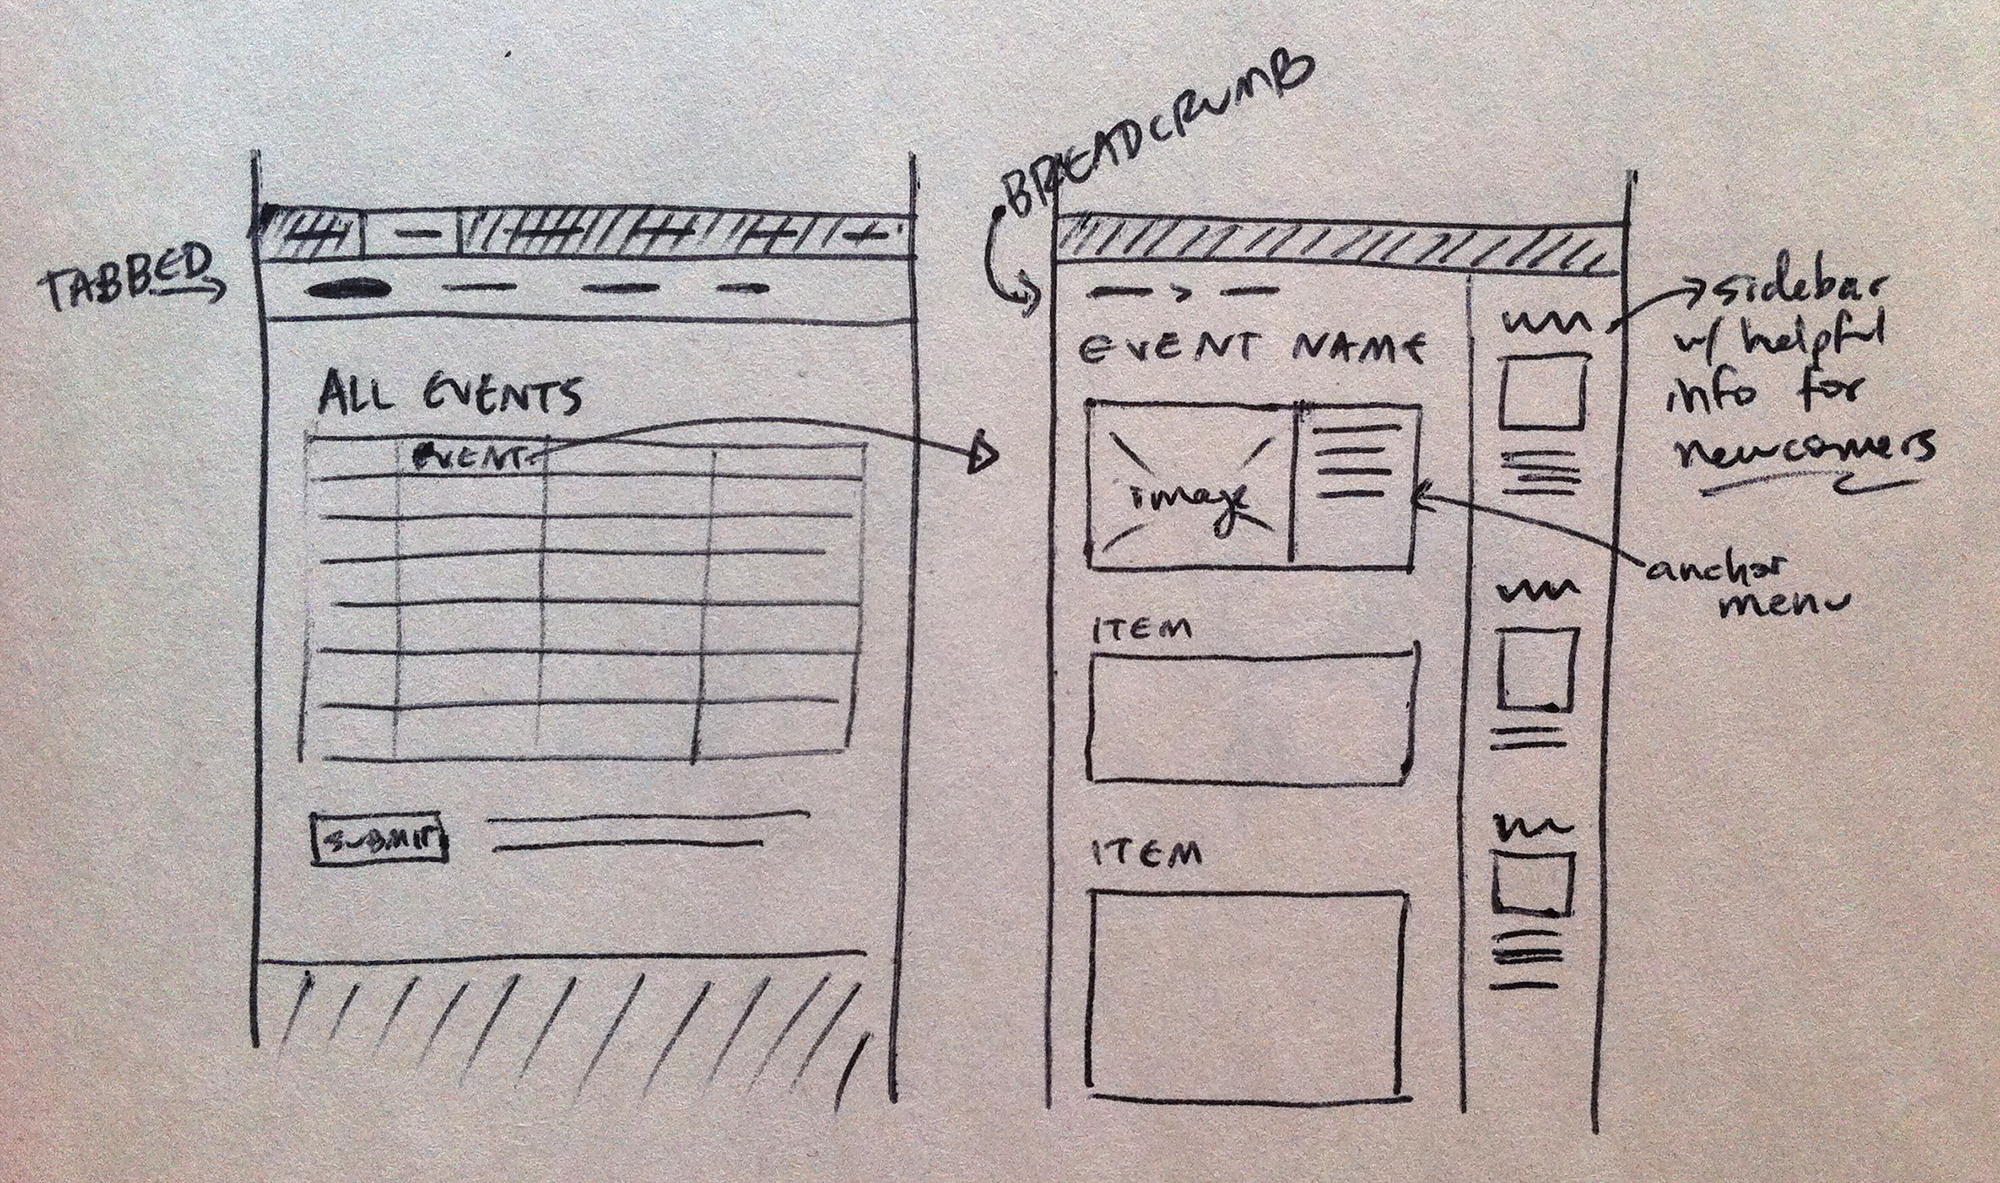 TABBED
ALL EVENTS
EVENT
SUBMIT
BREADCRUMB
EVENT NAME
image
ITEM
ITEM
sidebar
w/ helpful
info for
newcomers
anchor
menu